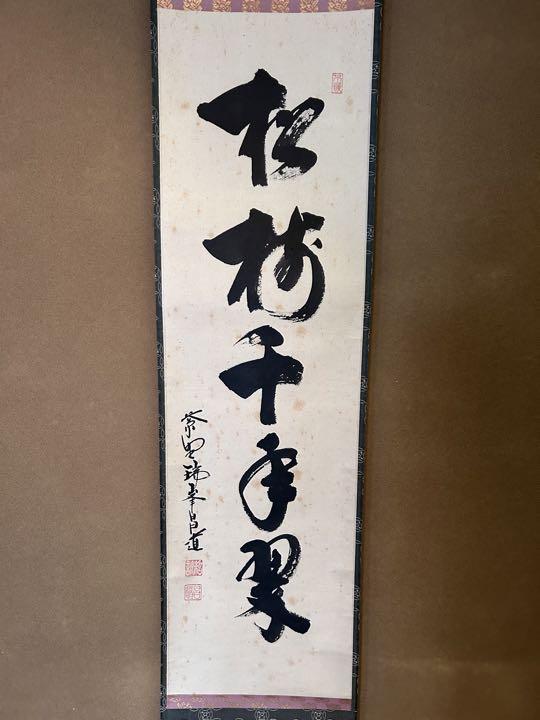 松樹千年翠
紫野瑞峯昌道